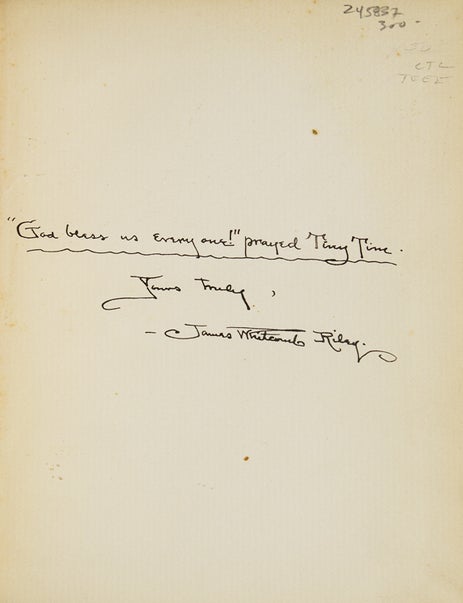 245837
300-
CTL
"God bless us every one!" prayed Tiny Tim.
Yours truly,
- James Whitcomb Riley.